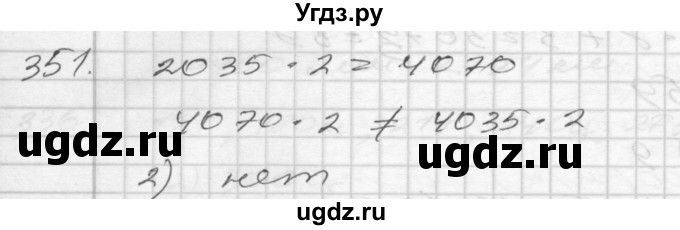 Угдз.ру
351. 2035 · 2 = 4070
4070 · 2 ≠ 4035 · 2
ugdz.ru ugdz.ru
2) нет
ugdz.ru